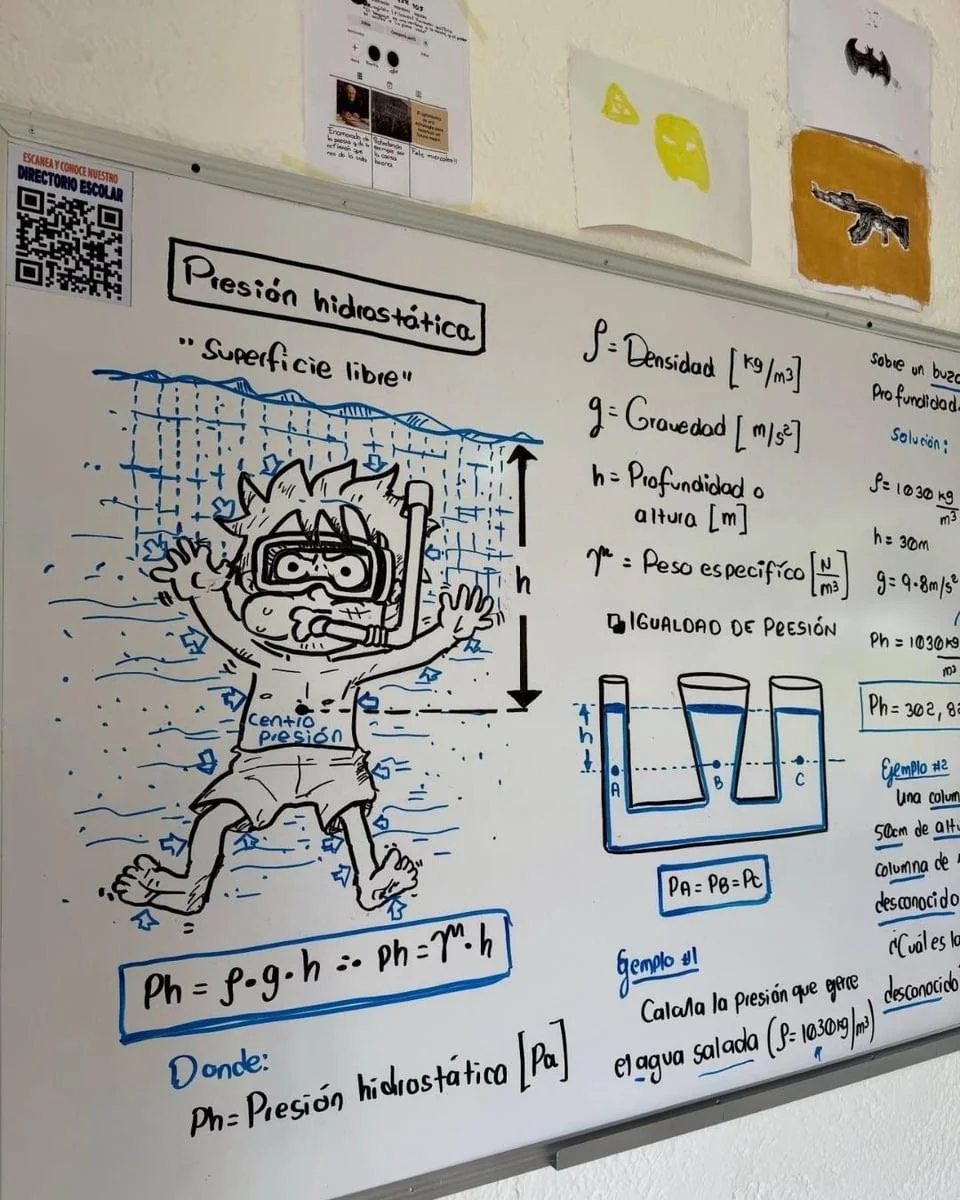 ESCANEA Y CONOCE NUESTRO
DIRECTORIO ESCOLAR
Presión hidrostática
"Superficie libre"
h
Centro
presión
Ph = ρ·g·h ∴ Ph = γ·h
Donde:
Ph = Presión hidrostática [Pa]
ρ = Densidad [kg/m3]
g = Gravedad [m/s²]
h = Profundidad o
altura [m]
γ = Peso específico [N/m3]
IGUALDAD DE PRESIÓN
h
A
B
C
PA = PB = PC
Ejemplo #1
Calcula la presión que ejerce
el agua salada (ρ = 1030 kg/m³)
sobre un
Profundidad.
Solución:
ρ = 1030 kg/m³
h = 30m
g = 9.8m/s²
Ph = 1030 kg/m³
Ph = 302, 8
Ejemplo #2
Una
50cm de
columna de
desconocido
¿Cuál es
desconocido